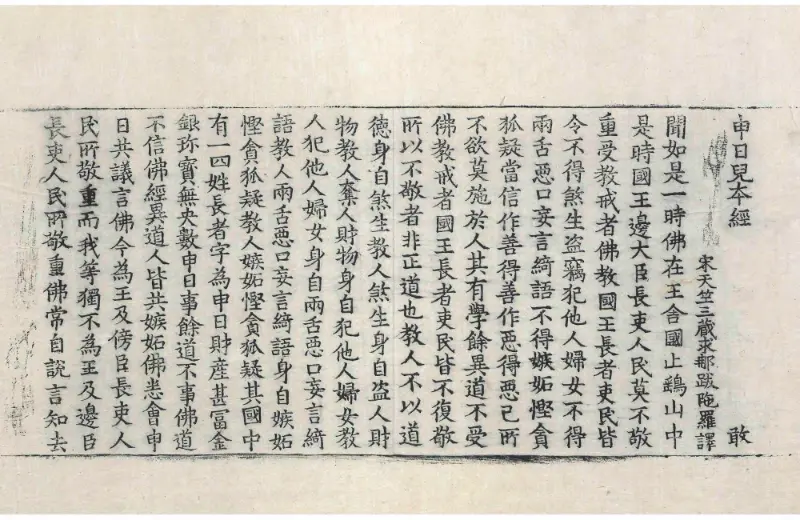 申日兒本經 敢
宋天竺三藏求那跋陁羅譯
聞如是一時佛在王舍國止鷄山中
是時國王邊大臣長吏人民莫不敬
重受教戒者佛教國王長者吏民皆
令不得煞生盜竊犯他人婦女不得
兩舌惡口妄言綺語不得嫉妬慳貪
狐疑當信作善得善作惡得惡己所
不欲莫施於人其有學餘異道不受
佛教戒者國王長者吏民皆不復敬
所以不敬者非正道也教人不以道
德身自煞生教人煞生身自盜人財
物教人奪人財物身自犯他人婦女教
人犯他人婦女身自兩舌惡口妄言綺
語教人兩舌惡口妄言綺語身自嫉妬
慳貪狐疑教人嫉妬慳貪狐疑其國中
有一四姓長者字為申日財產甚冨金
銀珎寶無央數申日事餘道不事佛道
不信佛經異道人皆共嫉妬佛悉會申
日共議言佛今為王及傍臣長吏人
民所敬重而我等獨不為王及邊臣
長吏人民所敬重佛常自說言知去